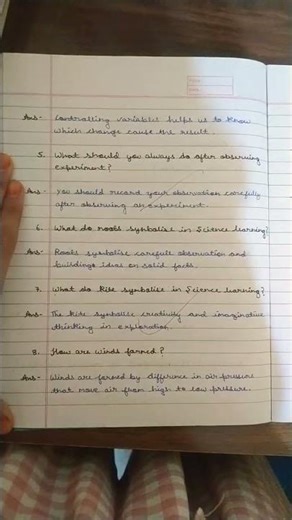 Ans- Controlling variables helps us to know
which change cause the result.
5. What should you always do after observing
experiment?
Ans- You should record your observation carefully
after observing an experiment.
6. What do roots symbolise in Science learning?
Ans- Roots symbolise carefull observation and
buildings ideas on solid facts.
7. What do Kite symbolise in Science learning?
Ans- The kite symbolise creativity and imaginative
thinking in exploration.
8. How are winds formed?
Ans- Winds are formed by difference in air pressure
that move air from high to low pressure.